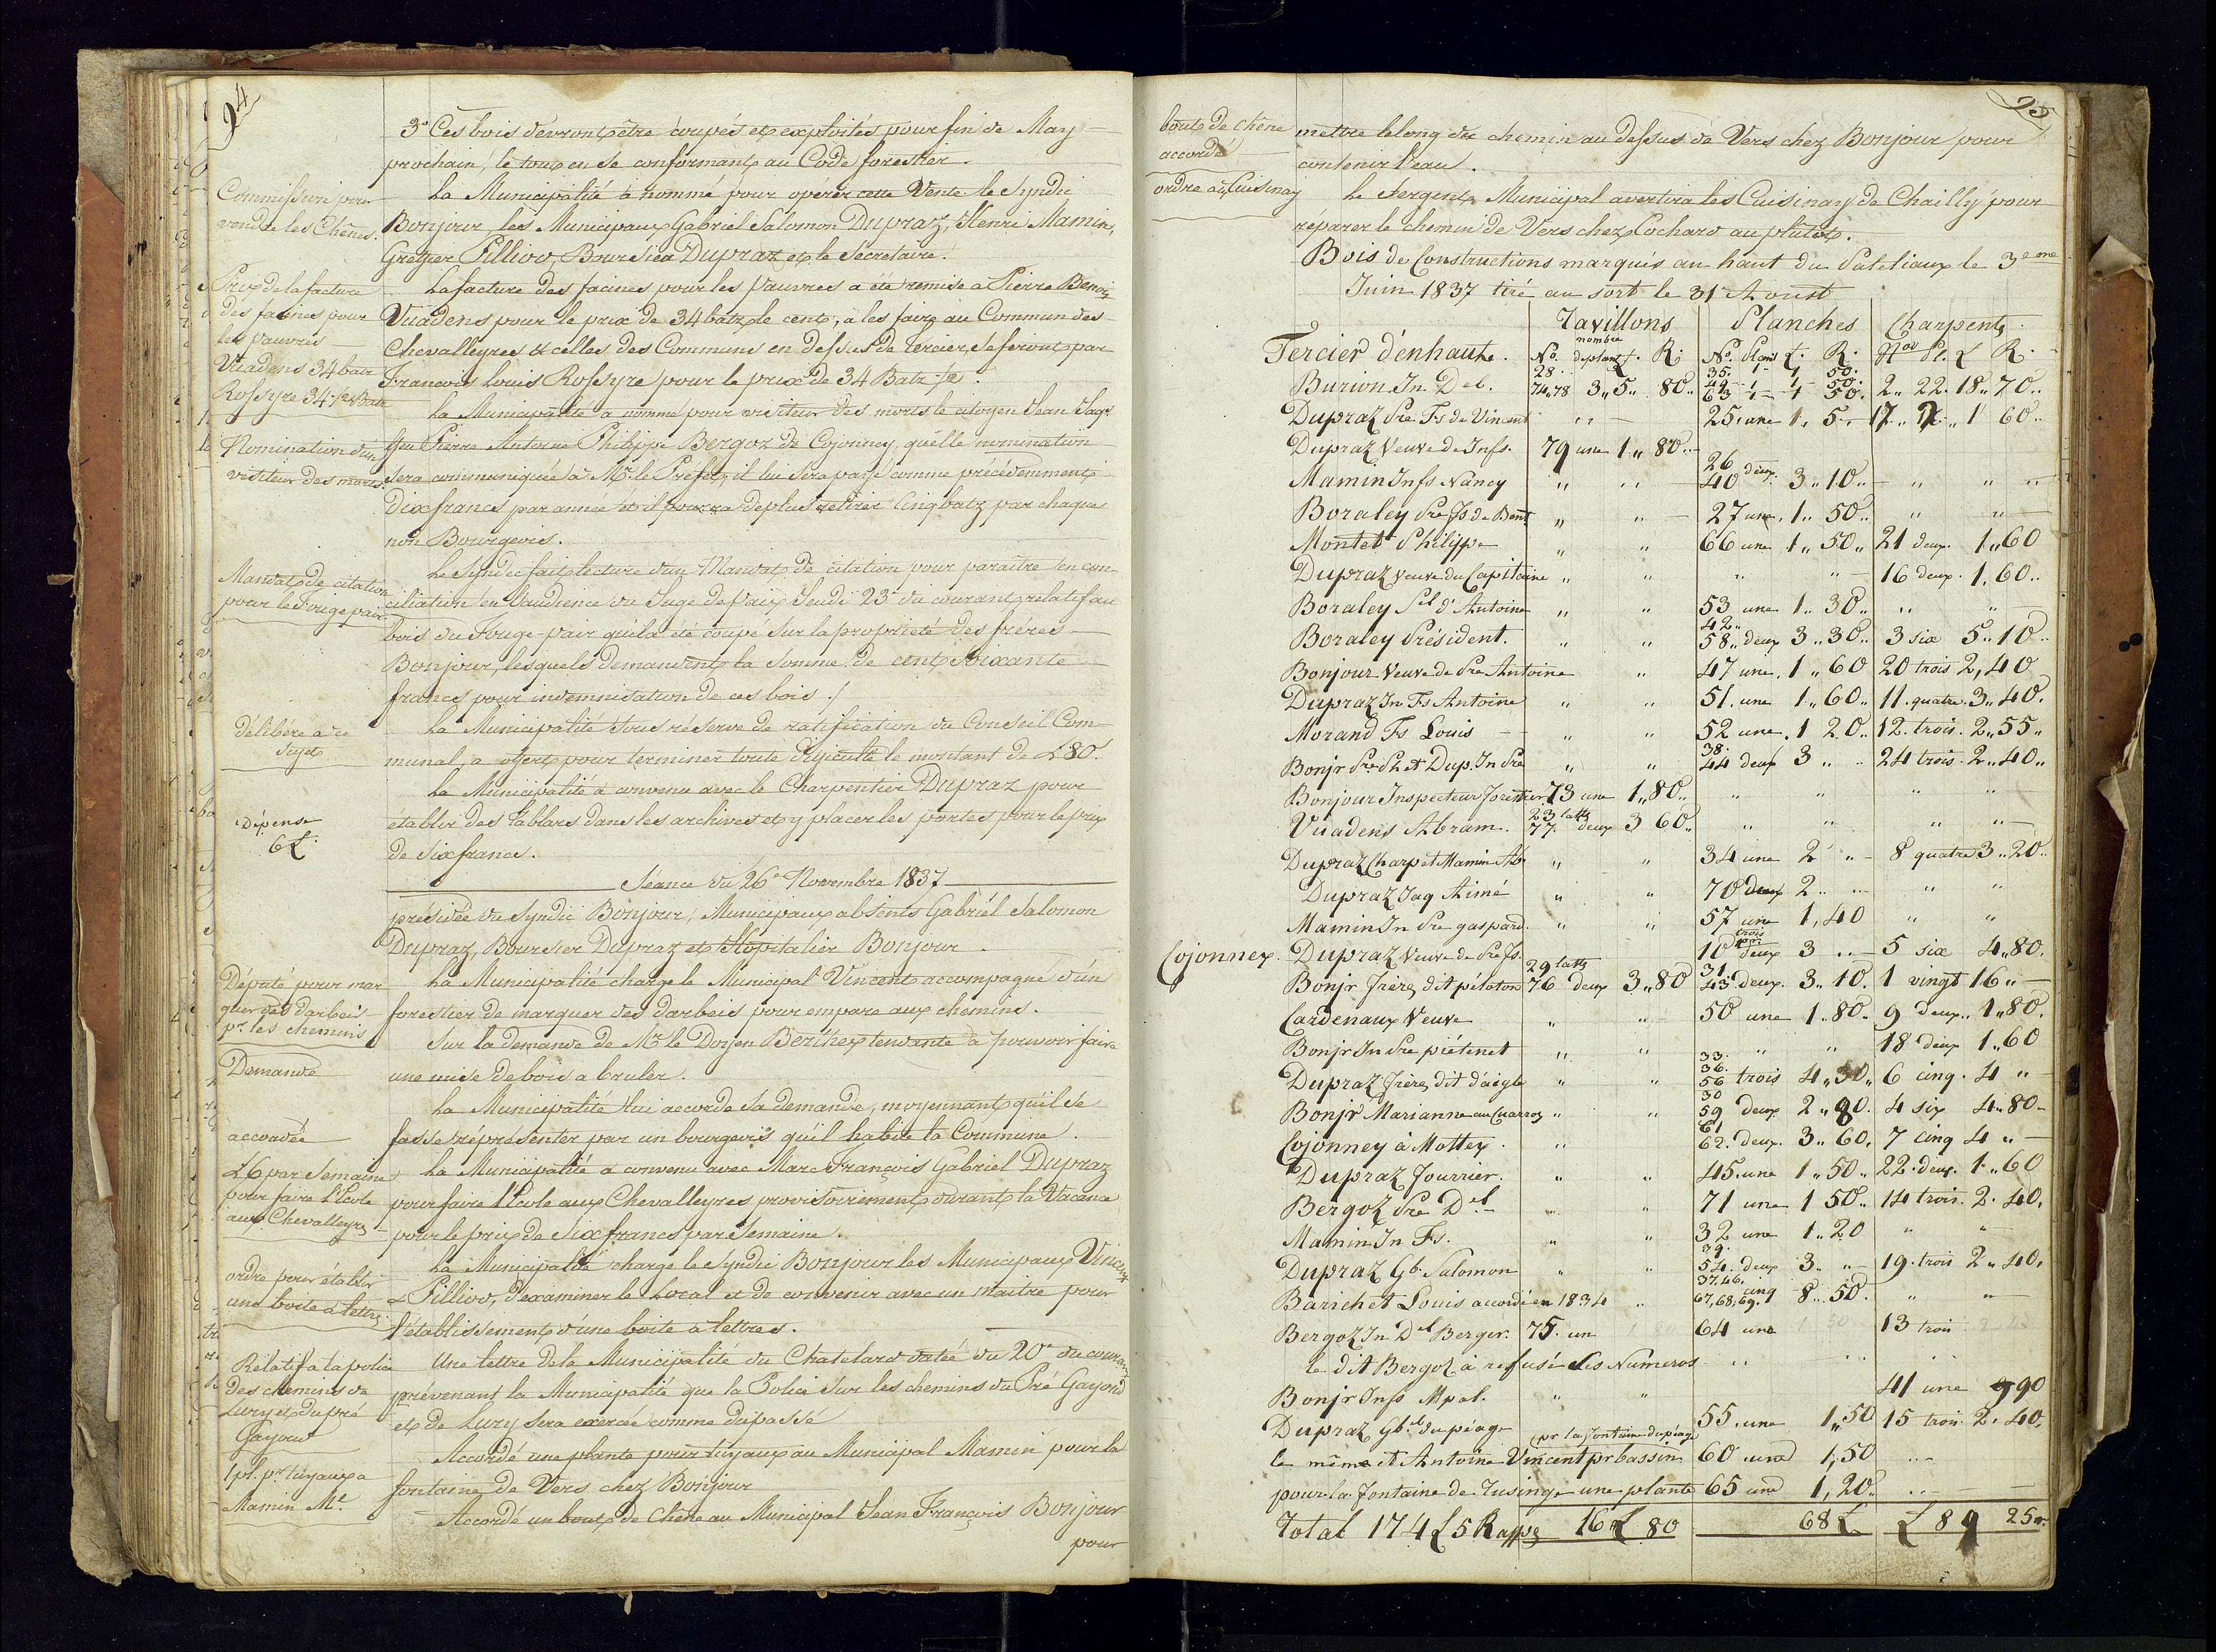 24
3° Ces bois devront être coupés et exploités pour fin de May
prochain, le tout en se conformant au Code forestier.
Commissaire pour
vendre les Chênes.
La Municipalité à nommé pour opérer cette Vente le Syndic
Bonjour, les Municipaux Gabriel Salomon Dupraz, Henri Mamin,
Greffier Pilliod, Boursier Dupraz et le Secretaire.
Prix de la facture
des facines pour
les pauvres
Vuadens 34 batz
Rossyre 34 Batz
La facture des facines pour les Pauvres a été remise a Pierre
Vuadens pour le prix de 34 batz le cent, a les faire au Commun des
Chevalleyres & celles des Communs en dessus de Tercier, se feront par
François Louis Rossyre pour le prix de 34 Batz
Nomination d'un
visiteur des morts.
La Municipalité a nommé pour visiteur des morts le citoyen Jean Jaq.
Pierre Antoine Philippe Bergoz de Cojonney, quélle nomination
sera communiquée a Mr. le Prefet, il lui sera payé comme précédemment
Dix francs par année et il pourra deplus retirer Cinq batz par chaque
non Bourgeois.
Mandat de citation
pour le Fougepair
Le Syndic fait lecture d'un Mandat de citation pour paraitre en con-
ciliation en l'audience du Juge de Paix Jeudi 23° du courant relatif au
bois du Fouge-pair quíl a été coupé sur la proprieté des fréres
Bonjour, lesquels demandent la somme de cent soixante
francs pour indemnisation de ces bois./
délibéré a ce
sujet
La Municipalité sous réserve de ratification du Conseil Com-
munal, a offert pour terminer toute dificulté le montant de £80.
Dépense
6£.
La Municipalité à convenu avec le Charpentier Dupraz pour
établir des Tablars dans les archives et y placer les portes pour le prix
de Six francs.
Séance du 26e Novembre 1837
présidée du Syndic Bonjour, Municipaux absents Gabriél Salomon
Dupraz, Boursier Dupraz et Hopitalier Bonjour.
Député pour mar-
quer des darbeis
pr. les chemins
La Municipalité charge le Municipal Vincent accompagné d'un
forestier de marquer des darbeis pour empare aux chemins.
Demande
Sur la demande de Mr. le Doyen Berthex tendante à pouvoir faire
une mise de bois a bruler.
accordée
La Municipalité lui accorde sa demande, moyennant quíl se
fasse réprésenter par un bourgeois quíl habite la Commune.
£6 par Semaine
pour faire l'Ecole
aux Chevalleyres
La Municipalité a convenu avec Marc François Gabriel Dupraz
pour faire l'Ecole aux Chevalleyres provisoirement durant la Vacance
pour le prix de Six francs par Semaine.
ordre pour établir
une boite à lettres
La Municipalité charge le Syndic Bonjour les Municipaux Vincent
& Pilliod, d'examiner le Local et de convenir avec un maitre pour
l'établissement d'une boite a lettres.
Rélatif a la police
des chemins de
Lury et du pré
Gayoud
Une lettre de la Municipalité du Chatelard datée du 20e du courant
prévenant la Municipalité que la Police sur les chemins du Pré Gayoud
et de Lury sera exercée comme du passé
1 pl. pr. tuyaux a
Mamin Ml
Accordé une plante pour tuyaux au Municipal Mamin pour la
fontaine de Vers chez Bonjour
Accordé un bout de Chêne au Municipal Jean François Bonjour
pour
25
bout de chêne
accordé
mettre le long du chemin au dessus de Vers chez Bonjour pour
contenir l'eau.
ordre au Cuisinay
Le Sergent Municipal avertira les Cuisinay de Chailly pour
réparer le chemin de Vers chez Cochard au plutot.
Bois de Constructions marqués au haut du Pateliaux le 3eme
Juin 1837 tiré au sort le 31 Aoust
Tavillons Planches Charpente
Tercier d'enhaut. No. nombre de plant £. R. No. Plant £. R. Nos Pl. £ R.
Burion Jn Del. 28. 74,78 3,, 5,, 80. 35. 1 1 50. 49 1 1 50. 63 1 1 50. 2,, 22. 18,, 70.
Dupraz Pre Fs de Vincent 25. une 1. 5 17. 1 60
Dupraz Veuve de Jnfs. 79 une 1,, 80.
Mamin Jnfs Nancy 26 40 deux 3,, 10.
Boraley Pre Fs de Bent 27 une. 1,, 50.
Montet Philippe 66 une 1,, 50,, 21 deux. 1,,60
Dupraz Veuve du Capitaine 16 deux. 1,60.
Boraley Sel d'Antoine 53 une 1,, 30.
Boraley Président. 42. 58. deux 3,, 30. 3 six 5,, 10.
Bonjour Veuve de Pre Antoine 47 une. 1,, 60 20 trois 2,40
Dupraz Jn Fs Antoine 51. une 1,,60. 11. quatre. 3,,40.
Morand Fs Louis 52 une. 1 20. 12. trois. 2,,55.
Bonjr Pre Ph et Dup. Jn Pre 38. 44 deux 3 24 trois. 2,,40.
Bonjour Inspecteur forestier 73 une 1,,80.
Vuadens Abram. 23 latte 77. deux 3 60.
Dupraz Charp et Mamin Ab. 34 une 2 8 quatre 3,,20.
Dupraz Jaq Aimé 70 deux 2
Mamin Jn Pre gaspard. 57 une 1,40
Cojonnex. Dupraz Veuve de Pre Fs. 10 trois deux 3 5 six 4,,80.
Bonjr frères dit péloton 29 latte 76 deux 3,,80 31. 43. deux. 3,,10. 1 vingt 16
Cardenaux Veuve 50 une 1,,80. 9 deux. 1,,80.
Bonjr Jn Pre piétinet 18 deux 1,,60
Dupraz frères, dit d'aigle 33. 36. 56 trois 4,,50. 6 cinq. 4
Bonjr Marianne au Cuarroz 30 59 deux 2,,80. 4 six 4,,80
Cojonney à Mottex 61 62. deux. 3,,60. 7 cinq 4
Dupraz Fourrier. 45. une 1,,50. 22. deux. 1,,60
Bergoz Pre Del 71 une 1 50. 14 trois. 2. 40.
Mamin Jn Fs. 32 une 1,,20
Dupraz Gb. Salomon 39. 54. deux 3. 19. trois 2,,40.
Barichet Louis accordé en 1834 37,46. 67,68,69. cinq 8,,50.
Bergoz Jn Del Berger. 75. un 1 80 64 une 1 50 13 trois
le dit Bergoz à refusé ses Numeros
Bonjr Jnfs Mpal. 41 une 90
Dupraz Gb.el du péage 55. une 1,,50 15 trois. 2. 40.
pr la fontaine du péage
le même et Antoine Vincent pr bassin 60 une 1,50
pour la fontaine de Tusinge une plante 65 une 1,20.
Total 174 £ 5 Rappes 16 £ 80 68 £ £ 89 25 r.